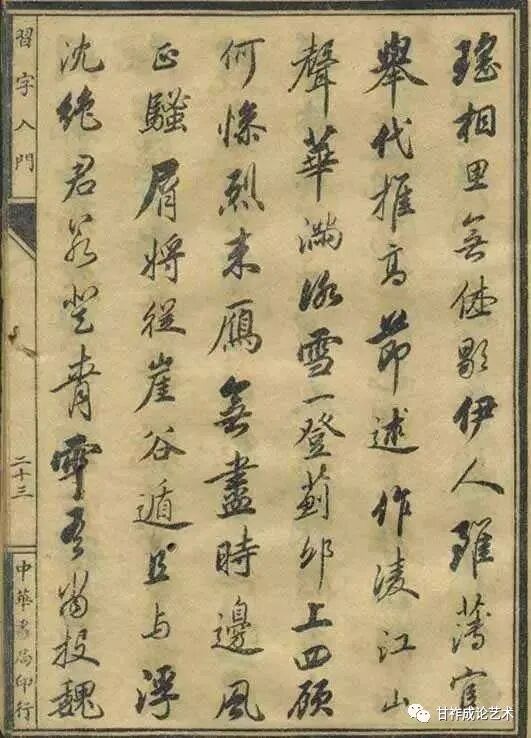 瑤相思無休歇伊人雖薄宦
舉代推高節述作凌江山
聲華滿冰雪一登薊邱上四顧
何慘烈來鴈無盡時邊風
正騷屑將從崖谷遁且与浮
沈絶君若登青雲吾當投魏
習字入門
二十三
中華書局印行
甘祚成论艺术